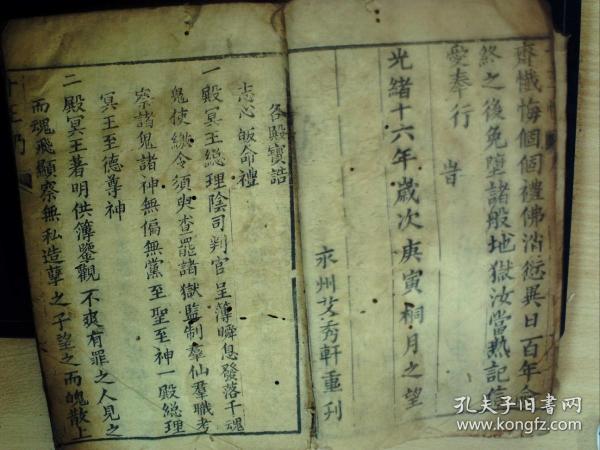 齋懺悔個個禮佛消愆異日百年命
終之後免墮諸般地獄汝當熟記信
愛奉行 旹
光緒十六年歲次庚寅桐月之望
永州文秀軒重刋
各殿寶誥
志心皈命禮
一殿冥王總理陰司判官呈薄瞬息發落千魂
鬼使繳令須臾查罷諸獄監制羣仙羣職考
崇諸鬼諸神無偏無黨至聖至神一殿總理
冥王至德尊神
二殿冥王著明供簿鑒觀不爽有罪之人見之
而魂飛顯察無私造孽之子望之而魄散上
十王
孔夫子旧书网
www.kongfz.com